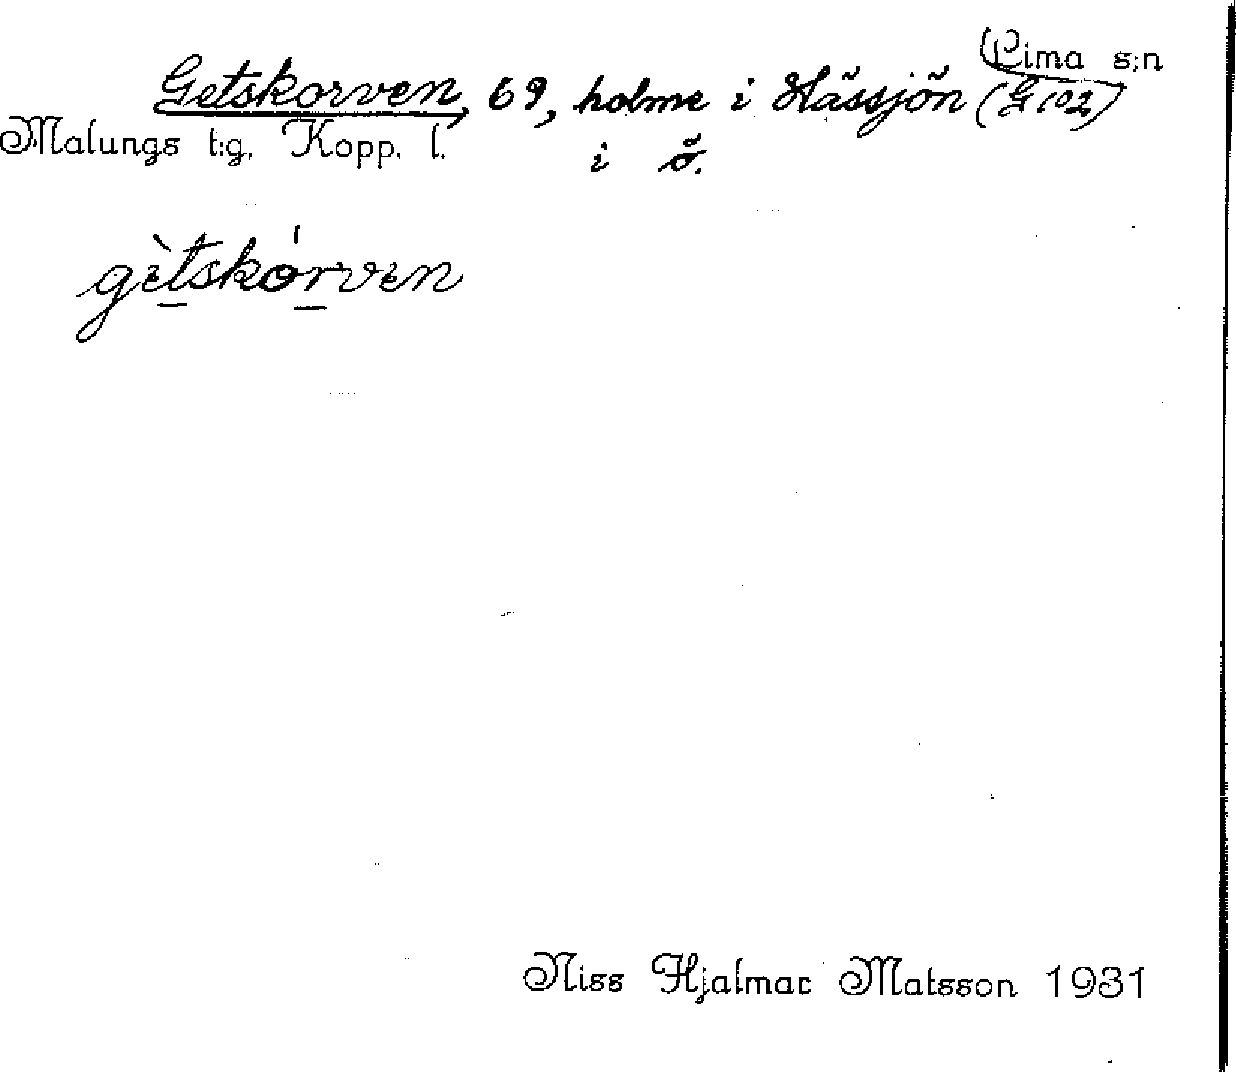 Lima s:n
Getskorven, 69, holme i Hässjön (G 102)
Malungs t:g. Kopp. l. i ö.
gètskórven
Niss Hjalmar Matsson 1931